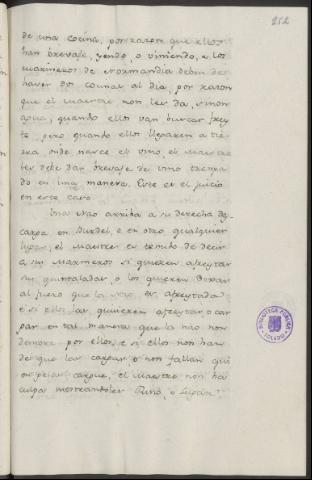 252
de una cocina, por razon que ellos
han brevaje, yendo, o viniendo, e los
marineros de Normandia deben de
haver dos cocinas al dia, por razon
que el maestre non les da, sinon
agua, quando ellos van buscar freyte
, pero quando ellos llegaren a tierra
onde nasce el vino, el maestre
les debe dar brevaje de vino
en una manera. Este es el juicio
en este caso.
Una Nao arriba a su derecha descarga
en Burdel, o en otro qualquier
lugar, el maestre es tenudo de decir
a sus Marineros si quieren afreytar
sus quintaladas, o los quieren
al fuero que la nao es afreytada
e si ellos las quieren afreytar o cargar
en tal manera que la nao non
demore por ellos, e si ellos non han
de que las cargar o non fallan qui
cargue, el Maestre non ha
culpa mostrandoles Runo, o lugar
BIBLIOTECA PUBLICA
TOLEDO